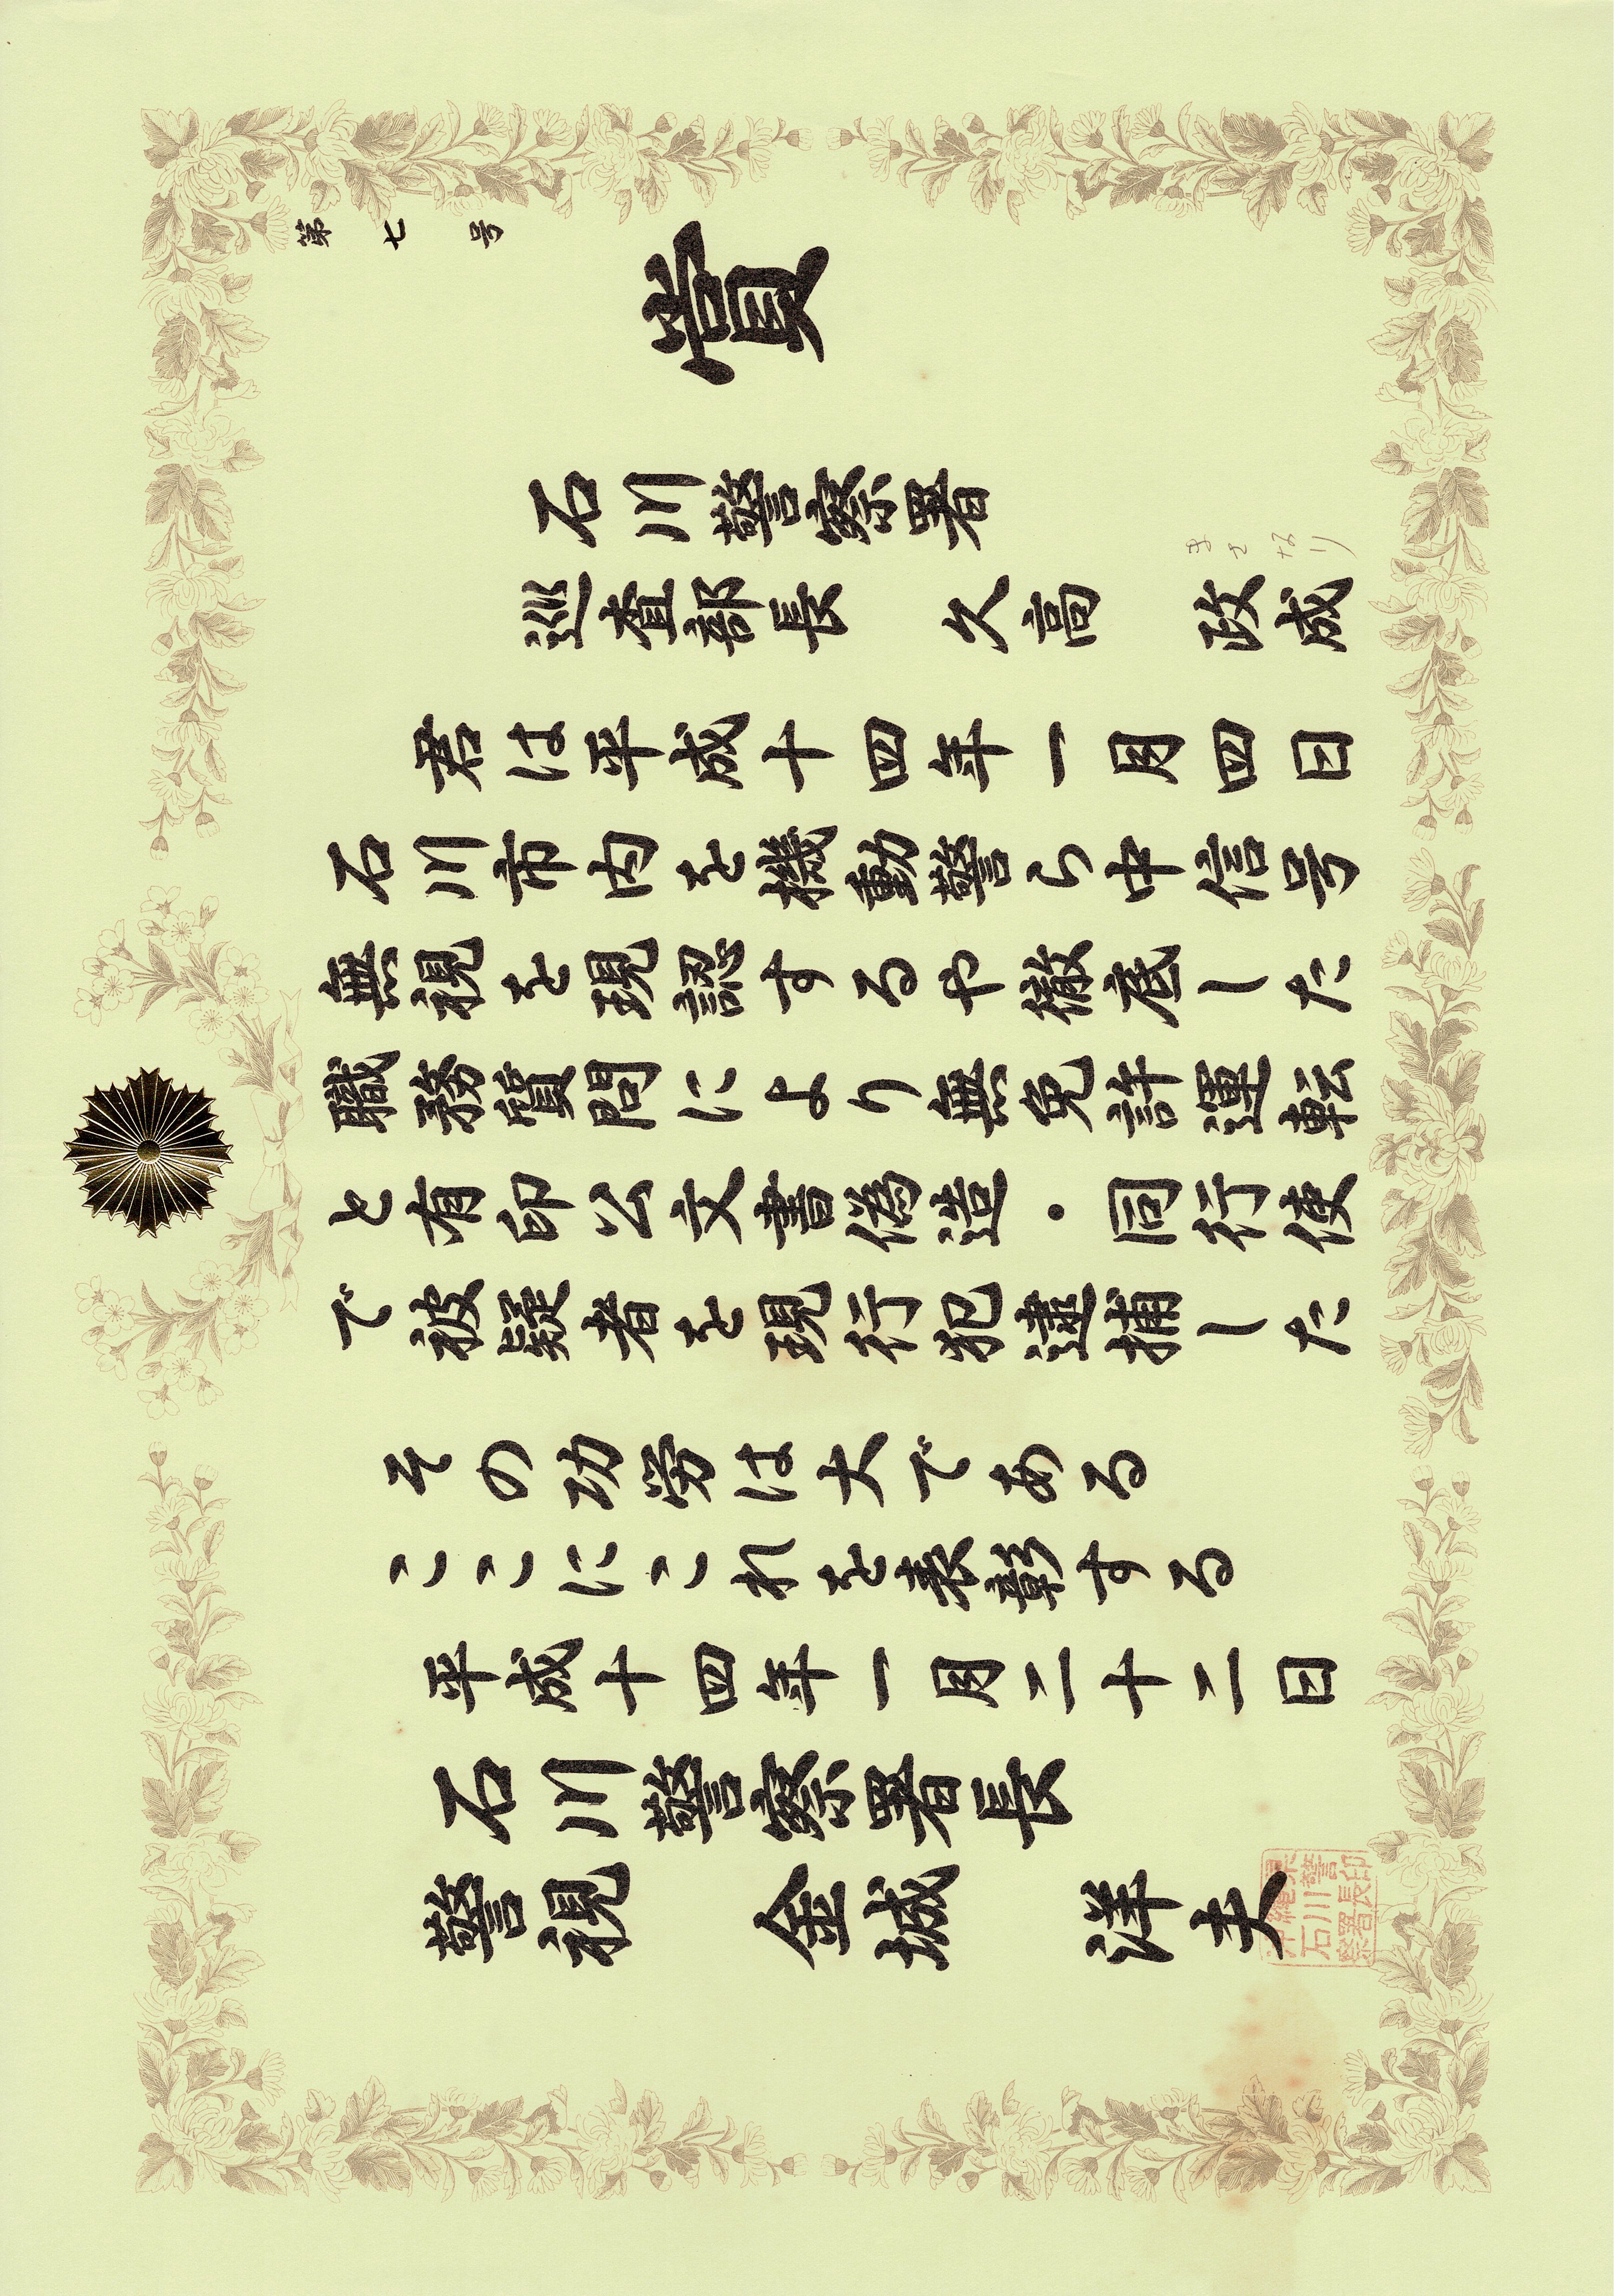 第七号
賞
石川警察署
巡査部長 久高 政成
まさなり
君は平成十四年一月四日
石川市内を機動警ら中信号
無視を現認するや徹底した
職務質問により無免許運転
と有印公文書偽造・同行使
で被疑者を現行犯逮捕した
その功労は大である
ここにこれを表彰する
平成十四年一月二十二日
石川警察署長
警視 金城 洋夫
沖縄県
石川警
察署長印